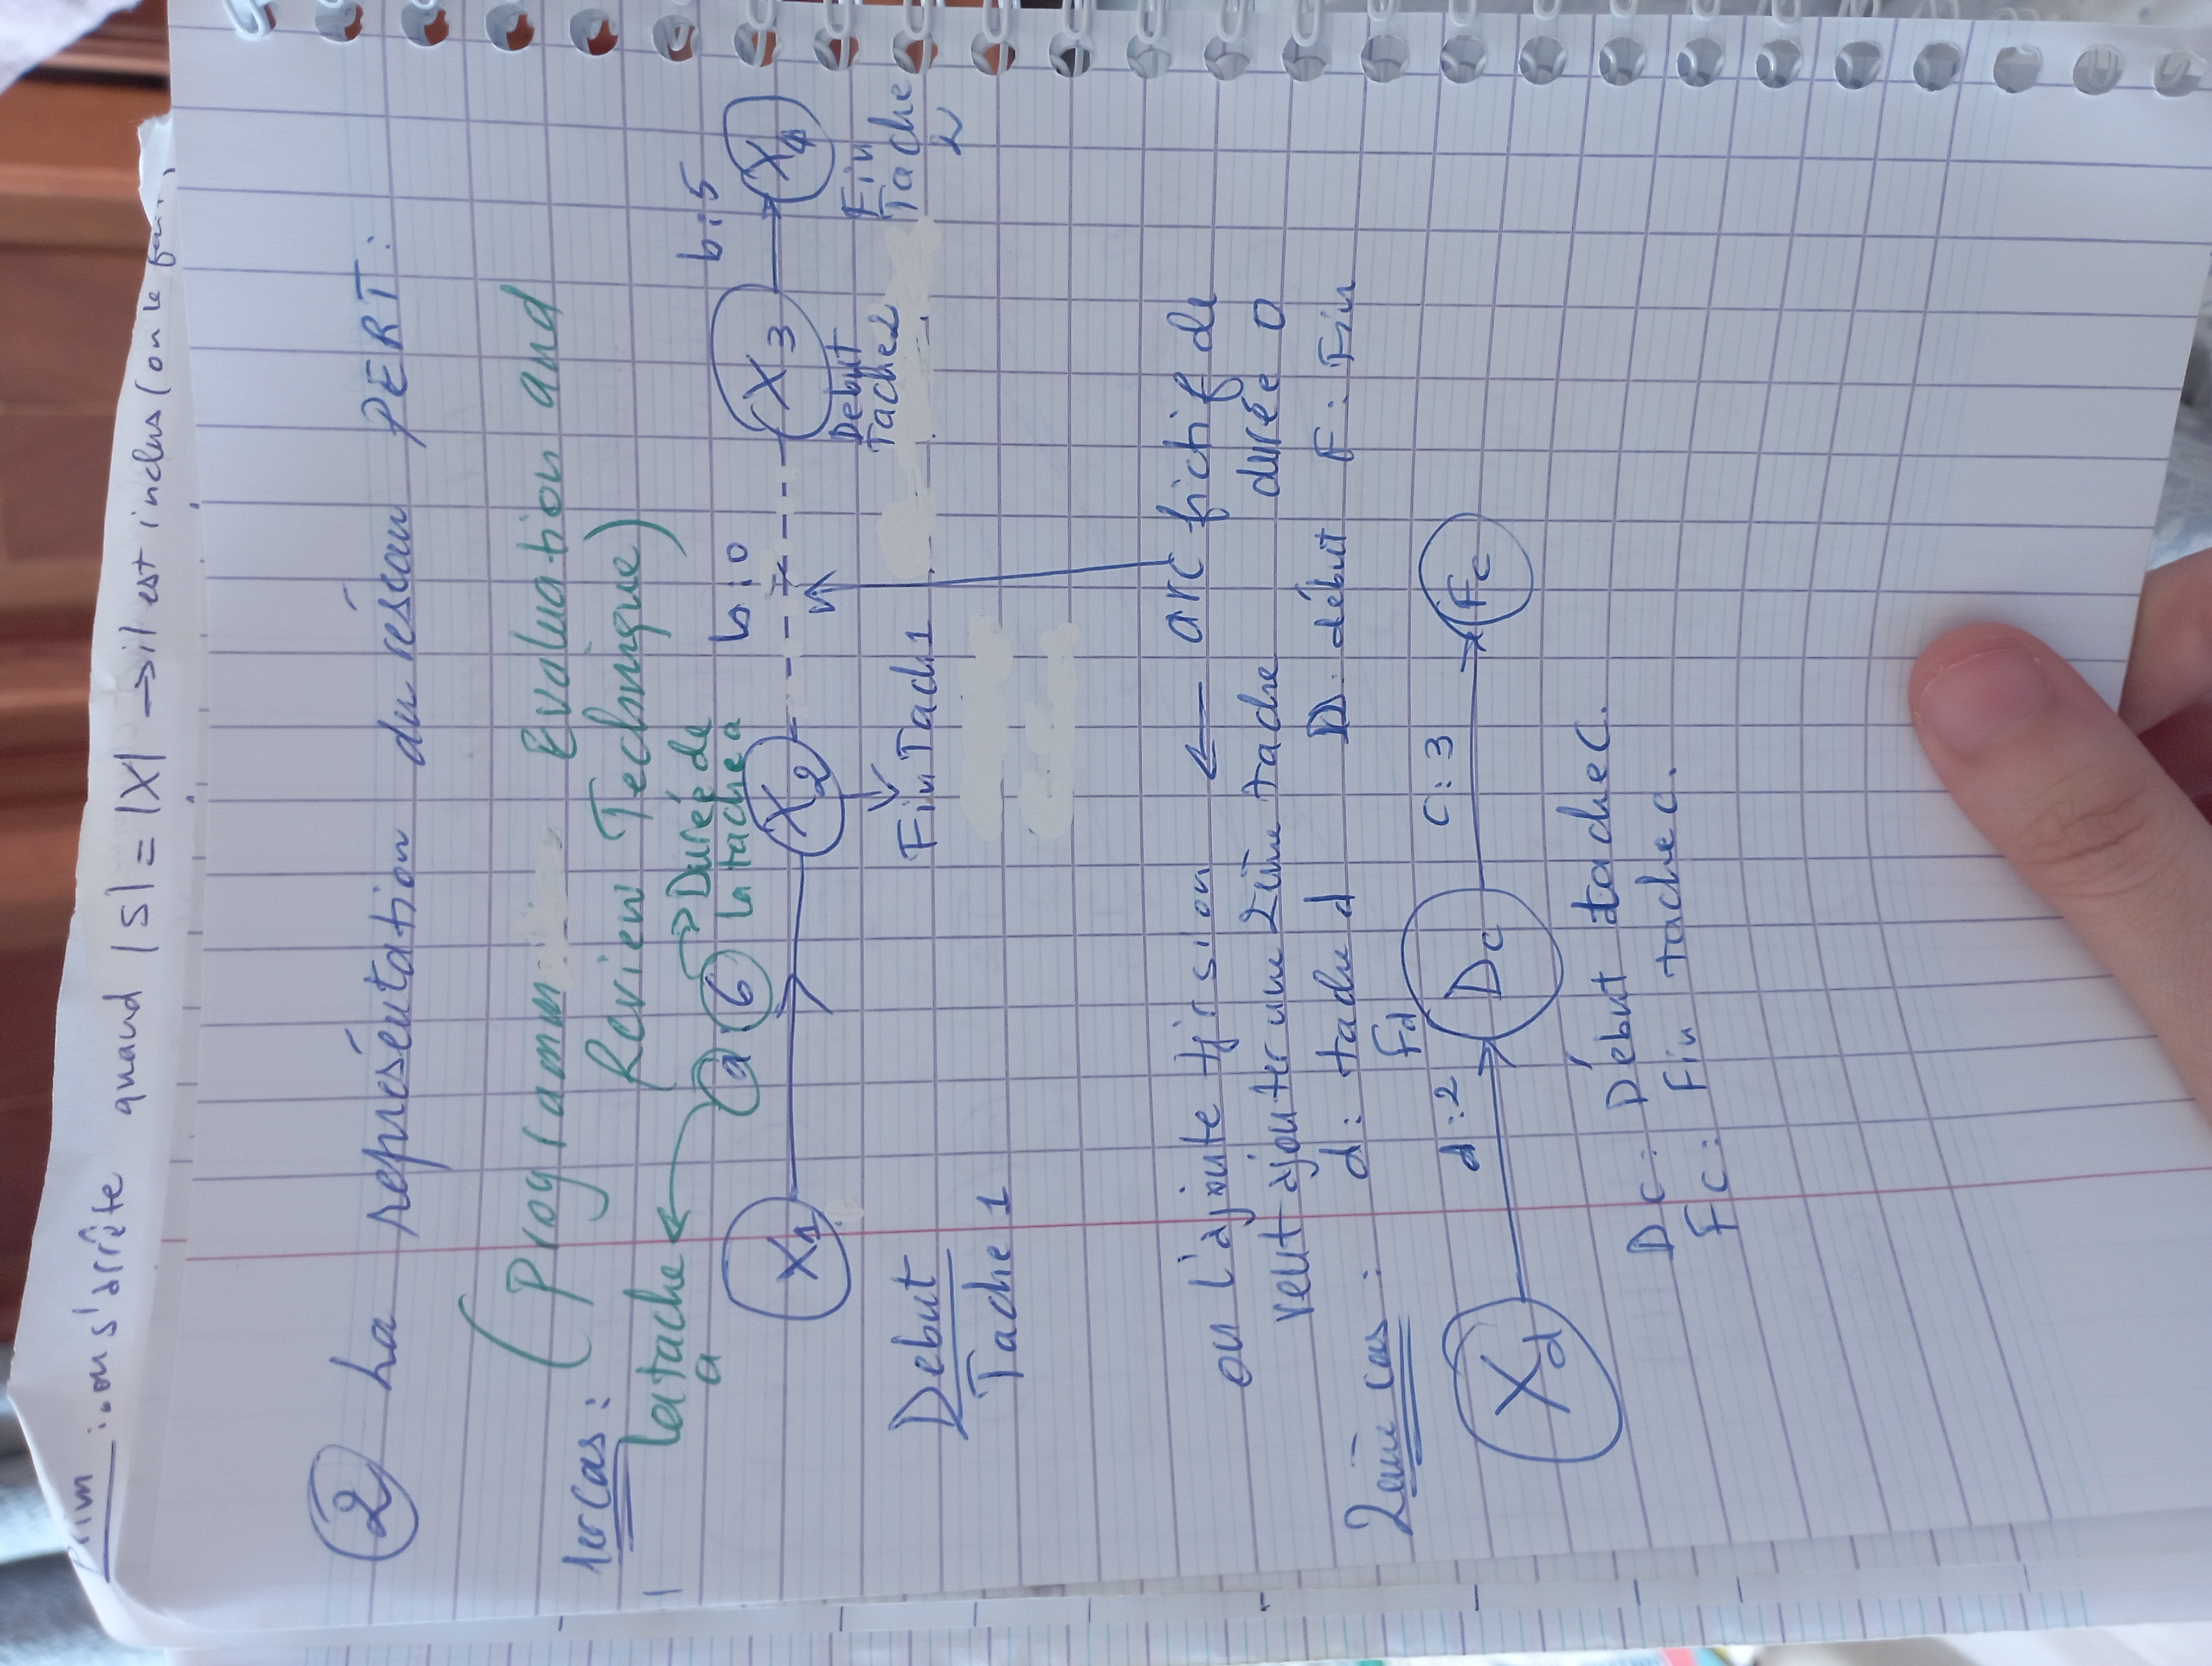 Prim : on s'arrête quand |S| = |X| → il est inclus (on le
② La représentation du réseau PERT :
(Programm Evaluation and
Review Technique)
1er Cas :
la tache a
a : 6
Durée de la tache a
b : 0
b : 5
X1
X2
X3
X4
Debut Tache 1
Fin Tach 1
Debut Tache 2
Fin Tache 2
on l'ajoute tjrs si on ← arc fictif de
veut ajouter une 2ème tache durée 0
d : tache d D : début F : Fin
2ème cas :
Fd
Xd d : 2 Dc C : 3 Fc
Dc : Début tache C.
Fc : Fin tache C.